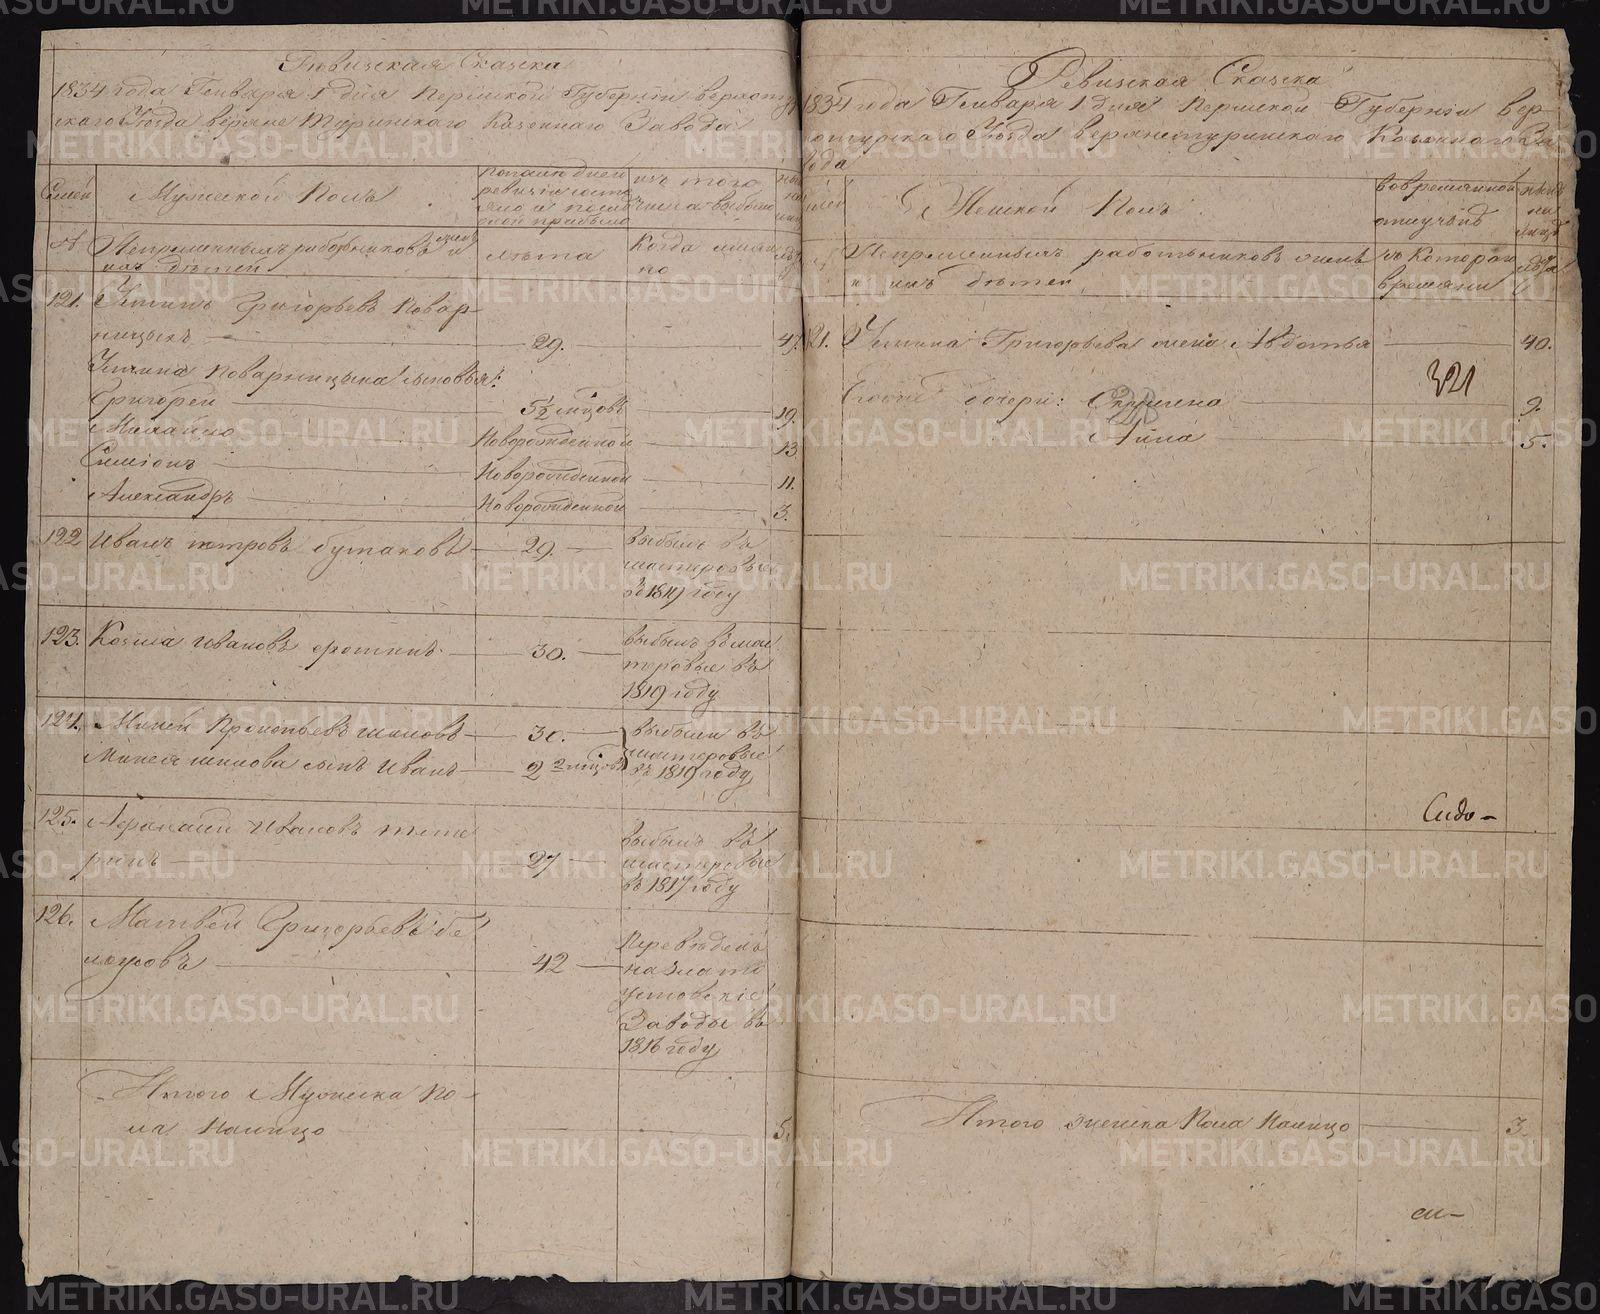 Ревизская Сказка
1834 года Генваря 1 дня Пермской Губернии верхоту
скаго Уезда верхне Туринскаго Казеннаго Завода
Семьи
Мужеской Полъ
по последней
ревизии состо
яло и после
оной прибыло
изъ того
числа выбыло
ныне
на
лицо
№
Непременныхъ работниковъ и
ихъ детей
лета
Когда имян
но
лета
121.
Устинъ Григорьевъ Повар-
ницынъ
29.
47.
Устина Поварницына сыновья:
Григорей
5½ мцовъ
19.
Михайло
Новорожденной
13
Симионъ
Новорожденной
11.
Александръ
Новорожденной
3.
122
Иванъ петровъ бутаковъ
29.
выбылъ въ
мастеровые
въ 1819 году
123.
Козма Ивановъ
30.
выбылъ въ мас
теровые въ
1819 году
124.
Михей Прокопьевъ шиловъ
30.
выбыли въ
мастеровые
въ 1819 году
Михея шилова сынъ Иванъ
2 2 мцовъ
125.
Афанасий Ивановъ тете
ринъ
27
выбылъ въ
мастеровые
въ 1817 году
126.
Матвей Григорьевъ бе
лоусовъ
42
Переведенъ
на злато
устовские
Заводы въ
1816 году
Итого Мужеска По-
ла налицо
5.
Ревизская Сказка
1834 года Генваря 1 дня Пермской Губернии Вер-
хотурскаго Уезда верхнетуринскаго Казеннаго За
вода
Семьи
Женской Полъ
во временной
отлучке
ныне
на
лицо
№
Непременныхъ работниковъ жены
и ихъ детей
съ котораго
времени
лета
121.
Устина Григорьева жена Авдотья
40.
321
Его дочери:
9.
Анна
5.
Сидо-
Итого женска Пола Налицо
3.
METRIKI.GASO-URAL.RU